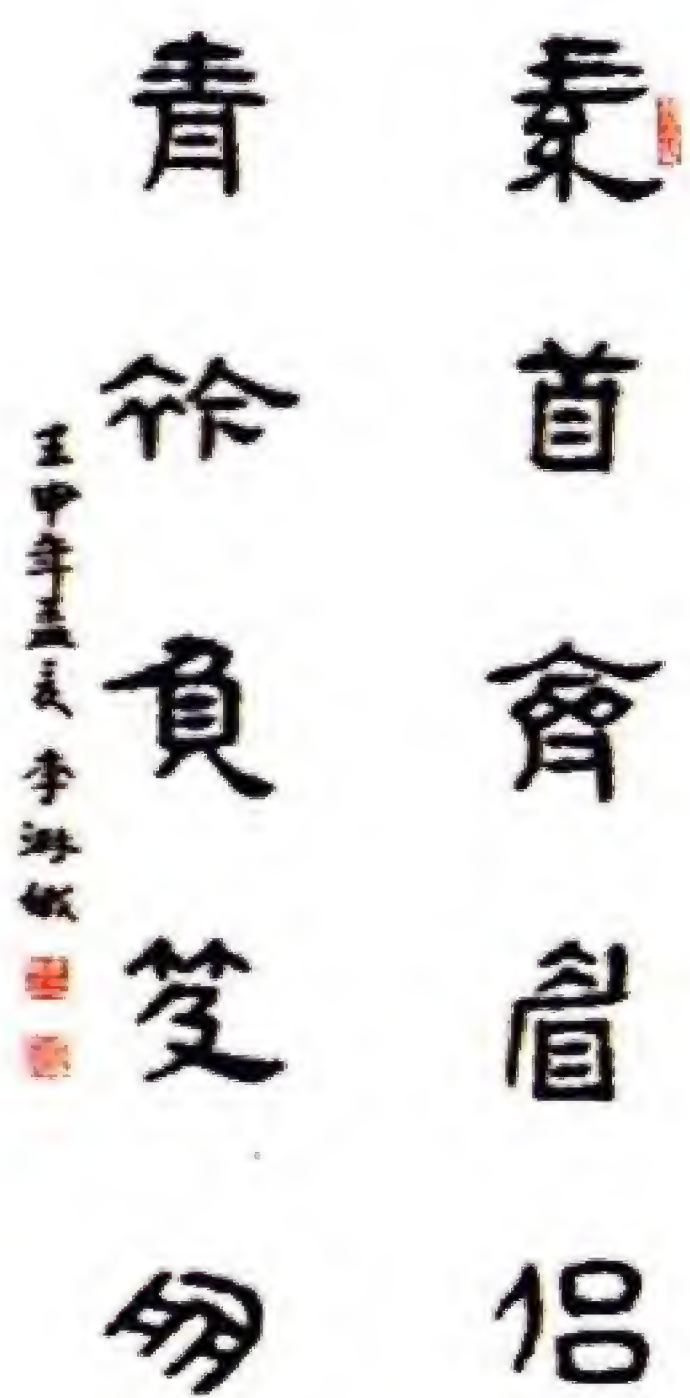 素首齊眉侶
青衿負笈朋
壬申年孟夏 李